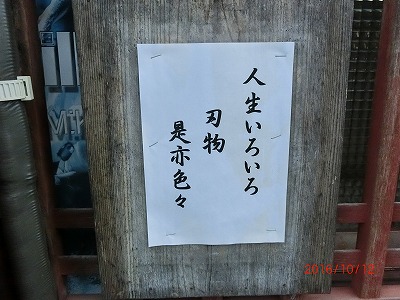 人生いろいろ
刃物
是亦色々
2016/10/12